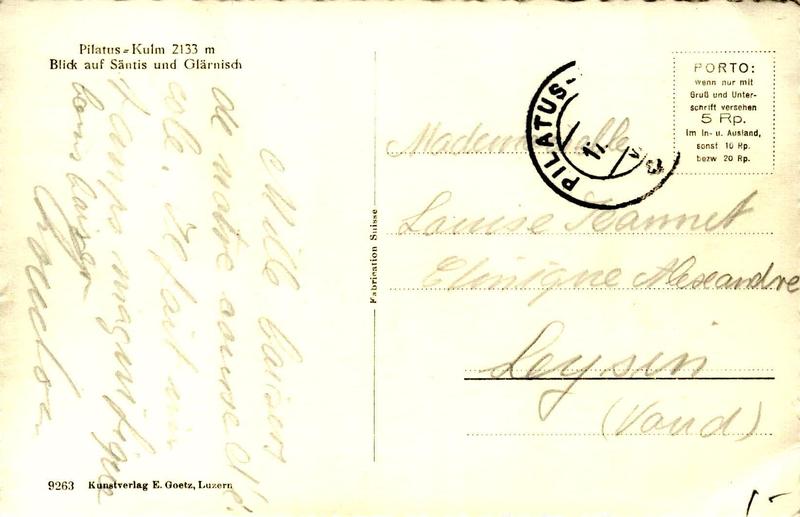 Pilatus=Kulm 2133 m
Blick auf Säntis und Glärnisch
Mille baisers
de notre course d'é
cole, Il fait un
temps magnifique
bons baiser
PILATUS-
17
PORTO:
wenn nur mit
Gruß und Unter-
schrift versehen
5 Rp.
im In- u. Ausland,
sonst 10 Rp.
bezw 20 Rp.
Mademoiselle
Louise Jeannet
Clinique Alexandre
Leysin
(Vaud)
Fabrication Suisse
9263 Kunstverlag E. Goetz, Luzern
1-